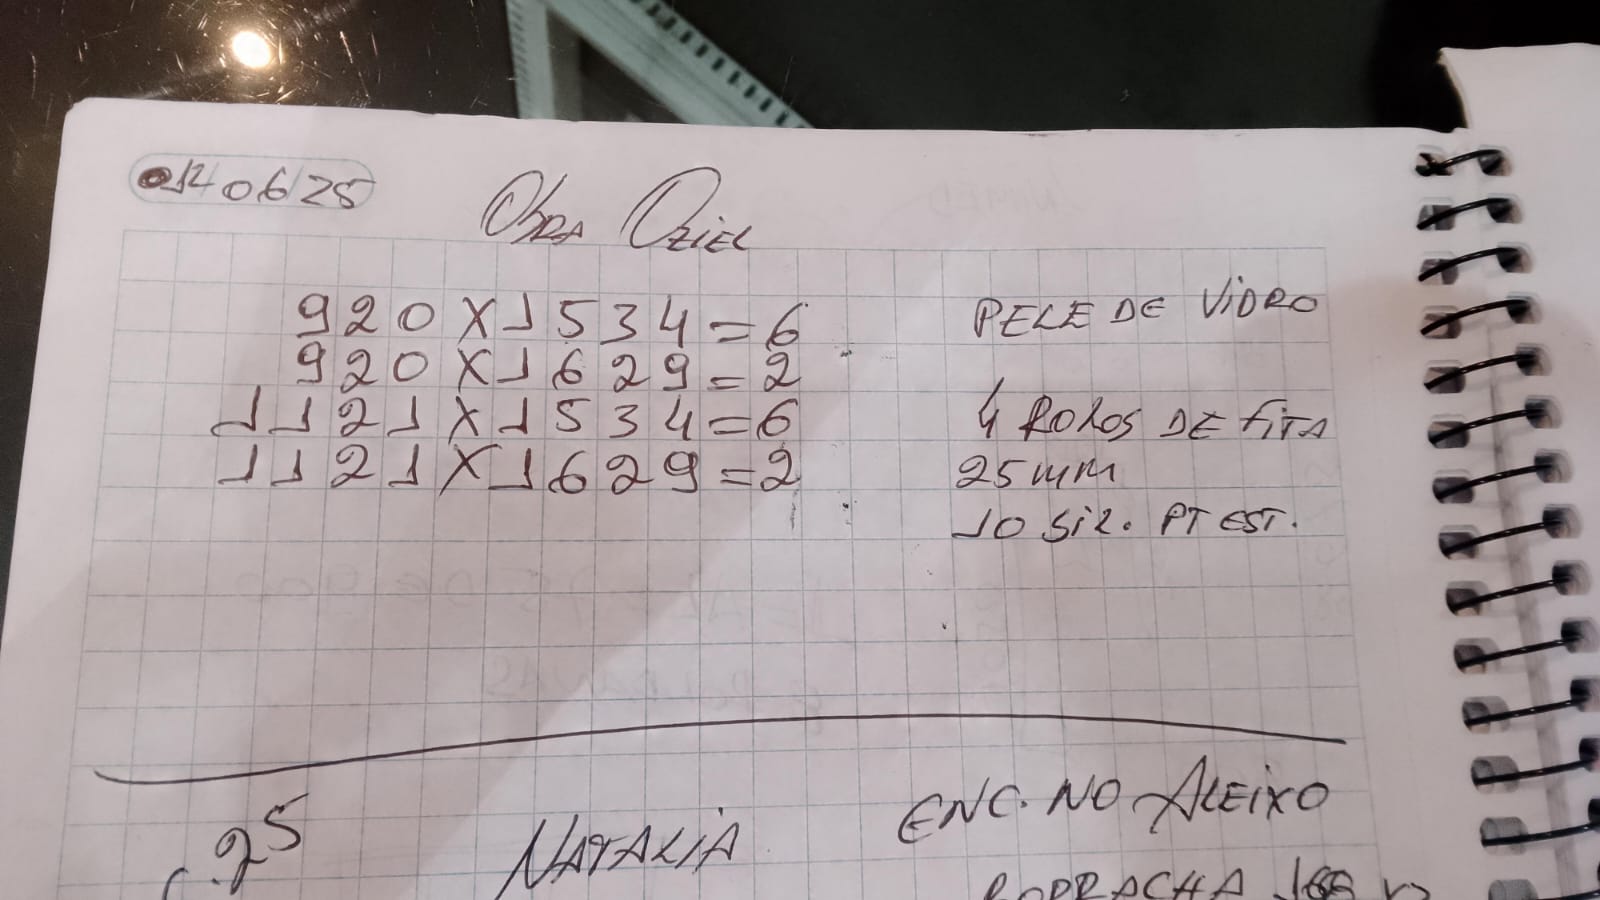 12/06/25
Obra Oziel
920 X 1534 = 6
920 X 1629 = 2
1121 X 1534 = 6
1121 X 1629 = 2
PELE DE VIDRO
4 ROLOS DE FITA
25 mm
10 SIL. PT EST.
25
NATALIA
ENC. NO ALEIXO
BORRACHA